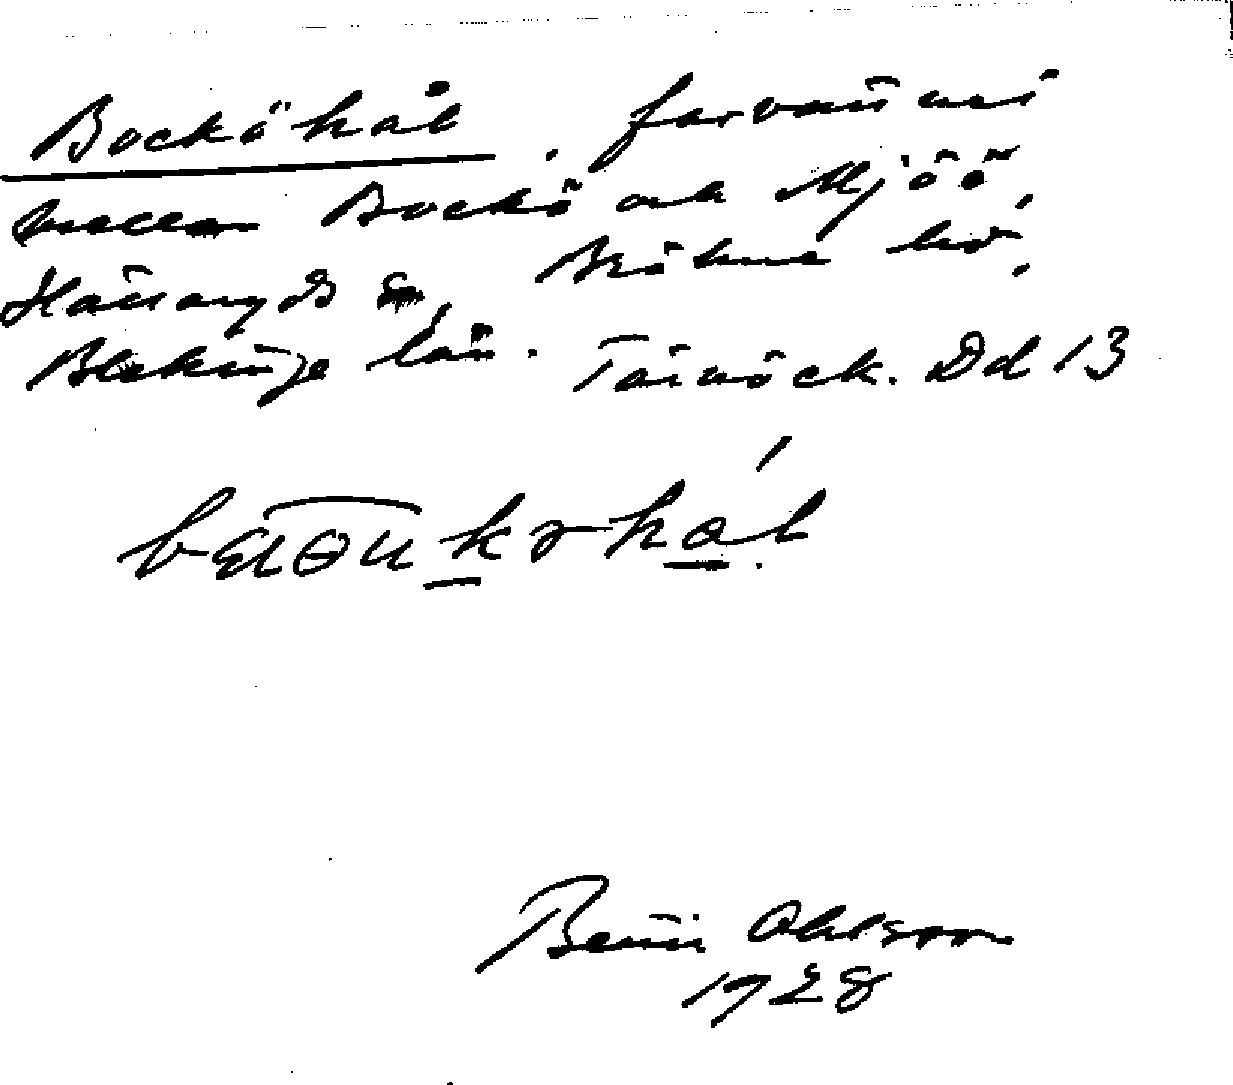 Bockö hål, farvattnet
mellan Bockö och Mjöö,
Hällaryds sn, Bräkne hd,
Blekinge län. Tärnöck. Dd 13
hål
Bertil Ohlsson
1928